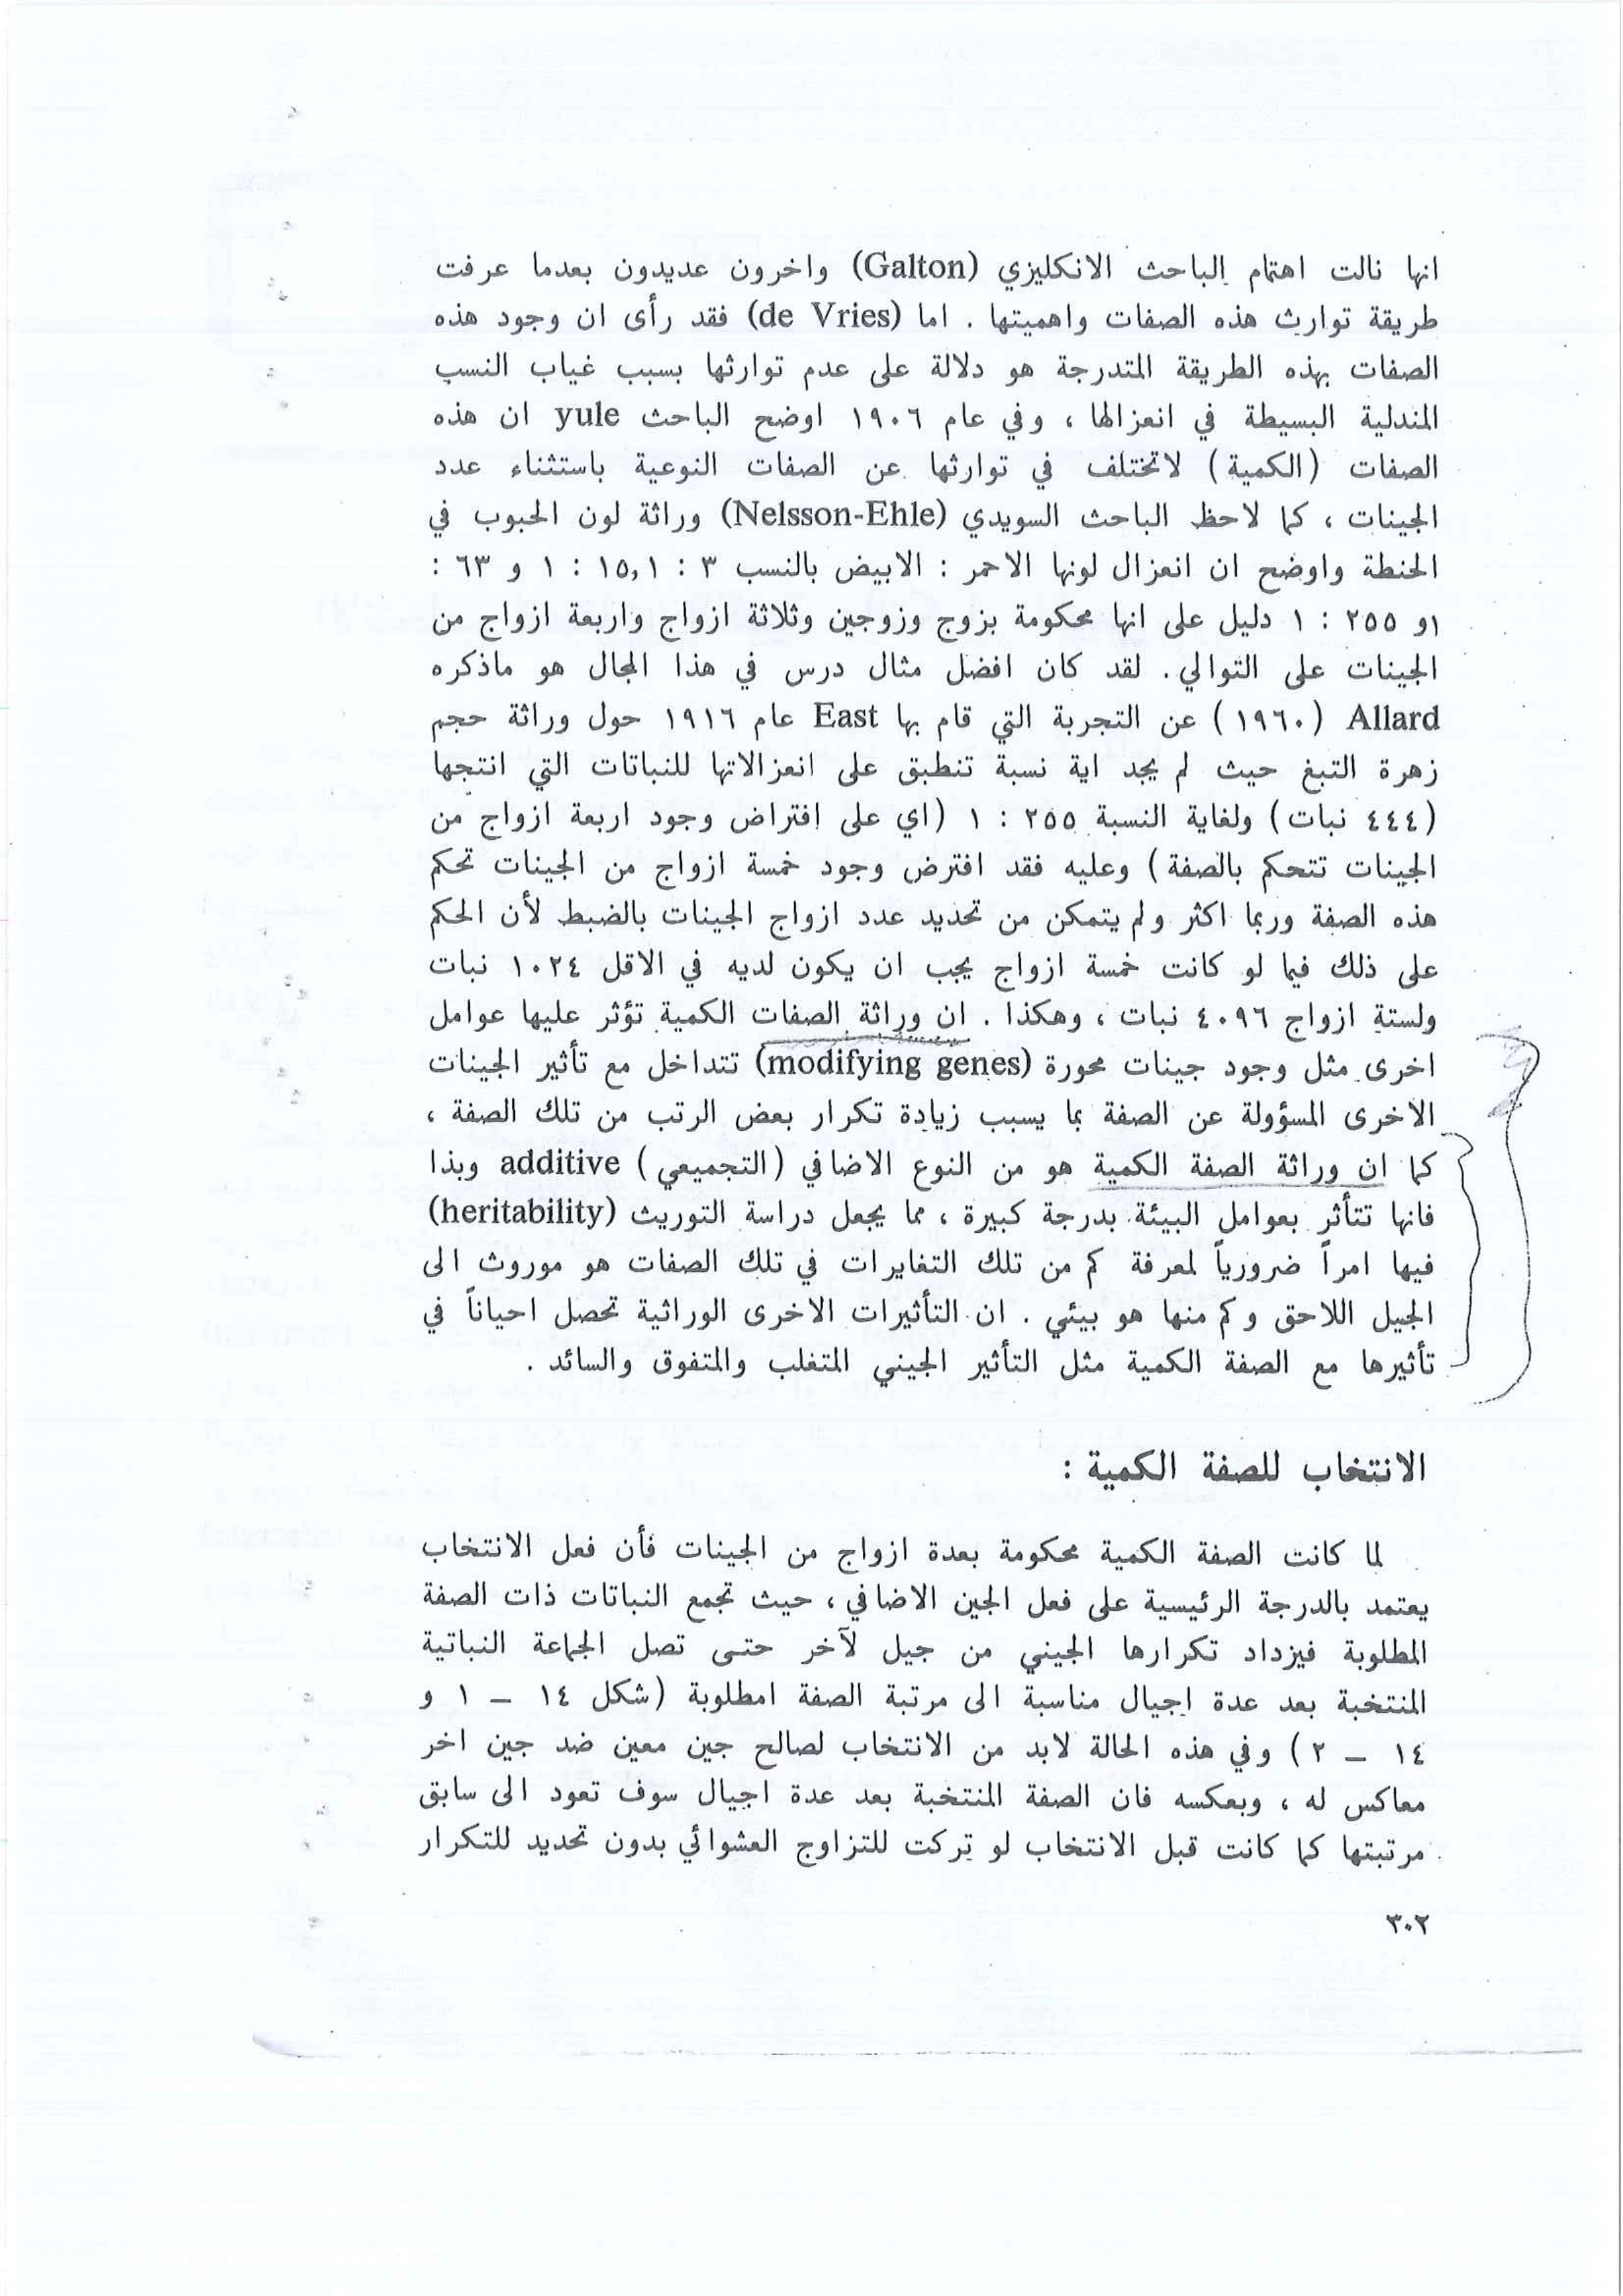 انها نالت اهتمام الباحث الانكليزي (Galton) واخرون عديدون بعدما عرفت
طريقة توارث هذه الصفات واهميتها . اما (de Vries) فقد رأى ان وجود هذه
الصفات بهذه الطريقة المتدرجة هو دلالة على عدم توارثها بسبب غياب النسب
المندلية البسيطة في انعزالها ، وفي عام ١٩٠٦ اوضح الباحث yule ان هذه
الصفات (الكمية) لاتختلف في توارثها عن الصفات النوعية باستثناء عدد
الجينات ، كما لاحظ الباحث السويدي (Nelsson-Ehle) وراثة لون الحبوب في
الحنطة واوضح ان انعزال لونها الاحمر : الابيض بالنسب ٣ : ١٥,١ : ١ و ٦٣ :
١و ٢٥٥ : ١ دليل على انها محكومة بزوج وزوجين وثلاثة ازواج واربعة ازواج من
الجينات على التوالي . لقد كان افضل مثال درس في هذا المجال هو ماذكره
Allard (١٩٦٠) عن التجربة التي قام بها East عام ١٩١٦ حول وراثة حجم
زهرة التبغ حيث لم يجد اية نسبة تنطبق على انعزالاتها للنباتات التي انتجها
(٤٤٤ نبات) ولغاية النسبة ٢٥٥ : ١ (اي على افتراض وجود اربعة ازواج من
الجينات تتحكم بالصفة) وعليه فقد افترض وجود خمسة ازواج من الجينات تحكم
هذه الصفة وربما اكثر ولم يتمكن من تحديد عدد ازواج الجينات بالضبط لأن الحكم
على ذلك فيما لو كانت خمسة ازواج يجب ان يكون لديه في الاقل ١٠٢٤ نبات
ولستة ازواج ٤٠٩٦ نبات ، وهكذا . ان وراثة الصفات الكمية تؤثر عليها عوامل
اخرى مثل وجود جينات محورة (modifying genes) تتداخل مع تأثير الجينات
الاخرى المسؤولة عن الصفة بما يسبب زيادة تكرار بعض الرتب من تلك الصفة ،
كما ان وراثة الصفة الكمية هو من النوع الاضافي (التجميعي) additive وبذا
فانها تتأثر بعوامل البيئة بدرجة كبيرة ، مما يجعل دراسة التوريث (heritability)
فيها امراً ضرورياً لمعرفة كم من تلك التغايرات في تلك الصفات هو موروث الى
الجيل اللاحق وكم منها هو بيئي . ان التأثيرات الاخرى الوراثية تحصل احياناً في
تأثيرها مع الصفة الكمية مثل التأثير الجيني المتغلب والمتفوق والسائد .
الانتخاب للصفة الكمية :
لما كانت الصفة الكمية محكومة بعدة ازواج من الجينات فأن فعل الانتخاب
يعتمد بالدرجة الرئيسية على فعل الجين الاضافي ، حيث تجمع النباتات ذات الصفة
المطلوبة فيزداد تكرارها الجيني من جيل لآخر حتى تصل الجماعة النباتية
المنتخبة بعد عدة اجيال مناسبة الى مرتبة الصفة امطلوبة (شكل ١٤ - ١ و
١٤ - ٢) وفي هذه الحالة لابد من الانتخاب لصالح جين معين ضد جين اخر
معاكس له ، وبعكسه فان الصفة المنتخبة بعد عدة اجيال سوف تعود الى سابق
مرتبتها كما كانت قبل الانتخاب لو تركت للتزاوج العشوائي بدون تحديد للتكرار
٣٠٢